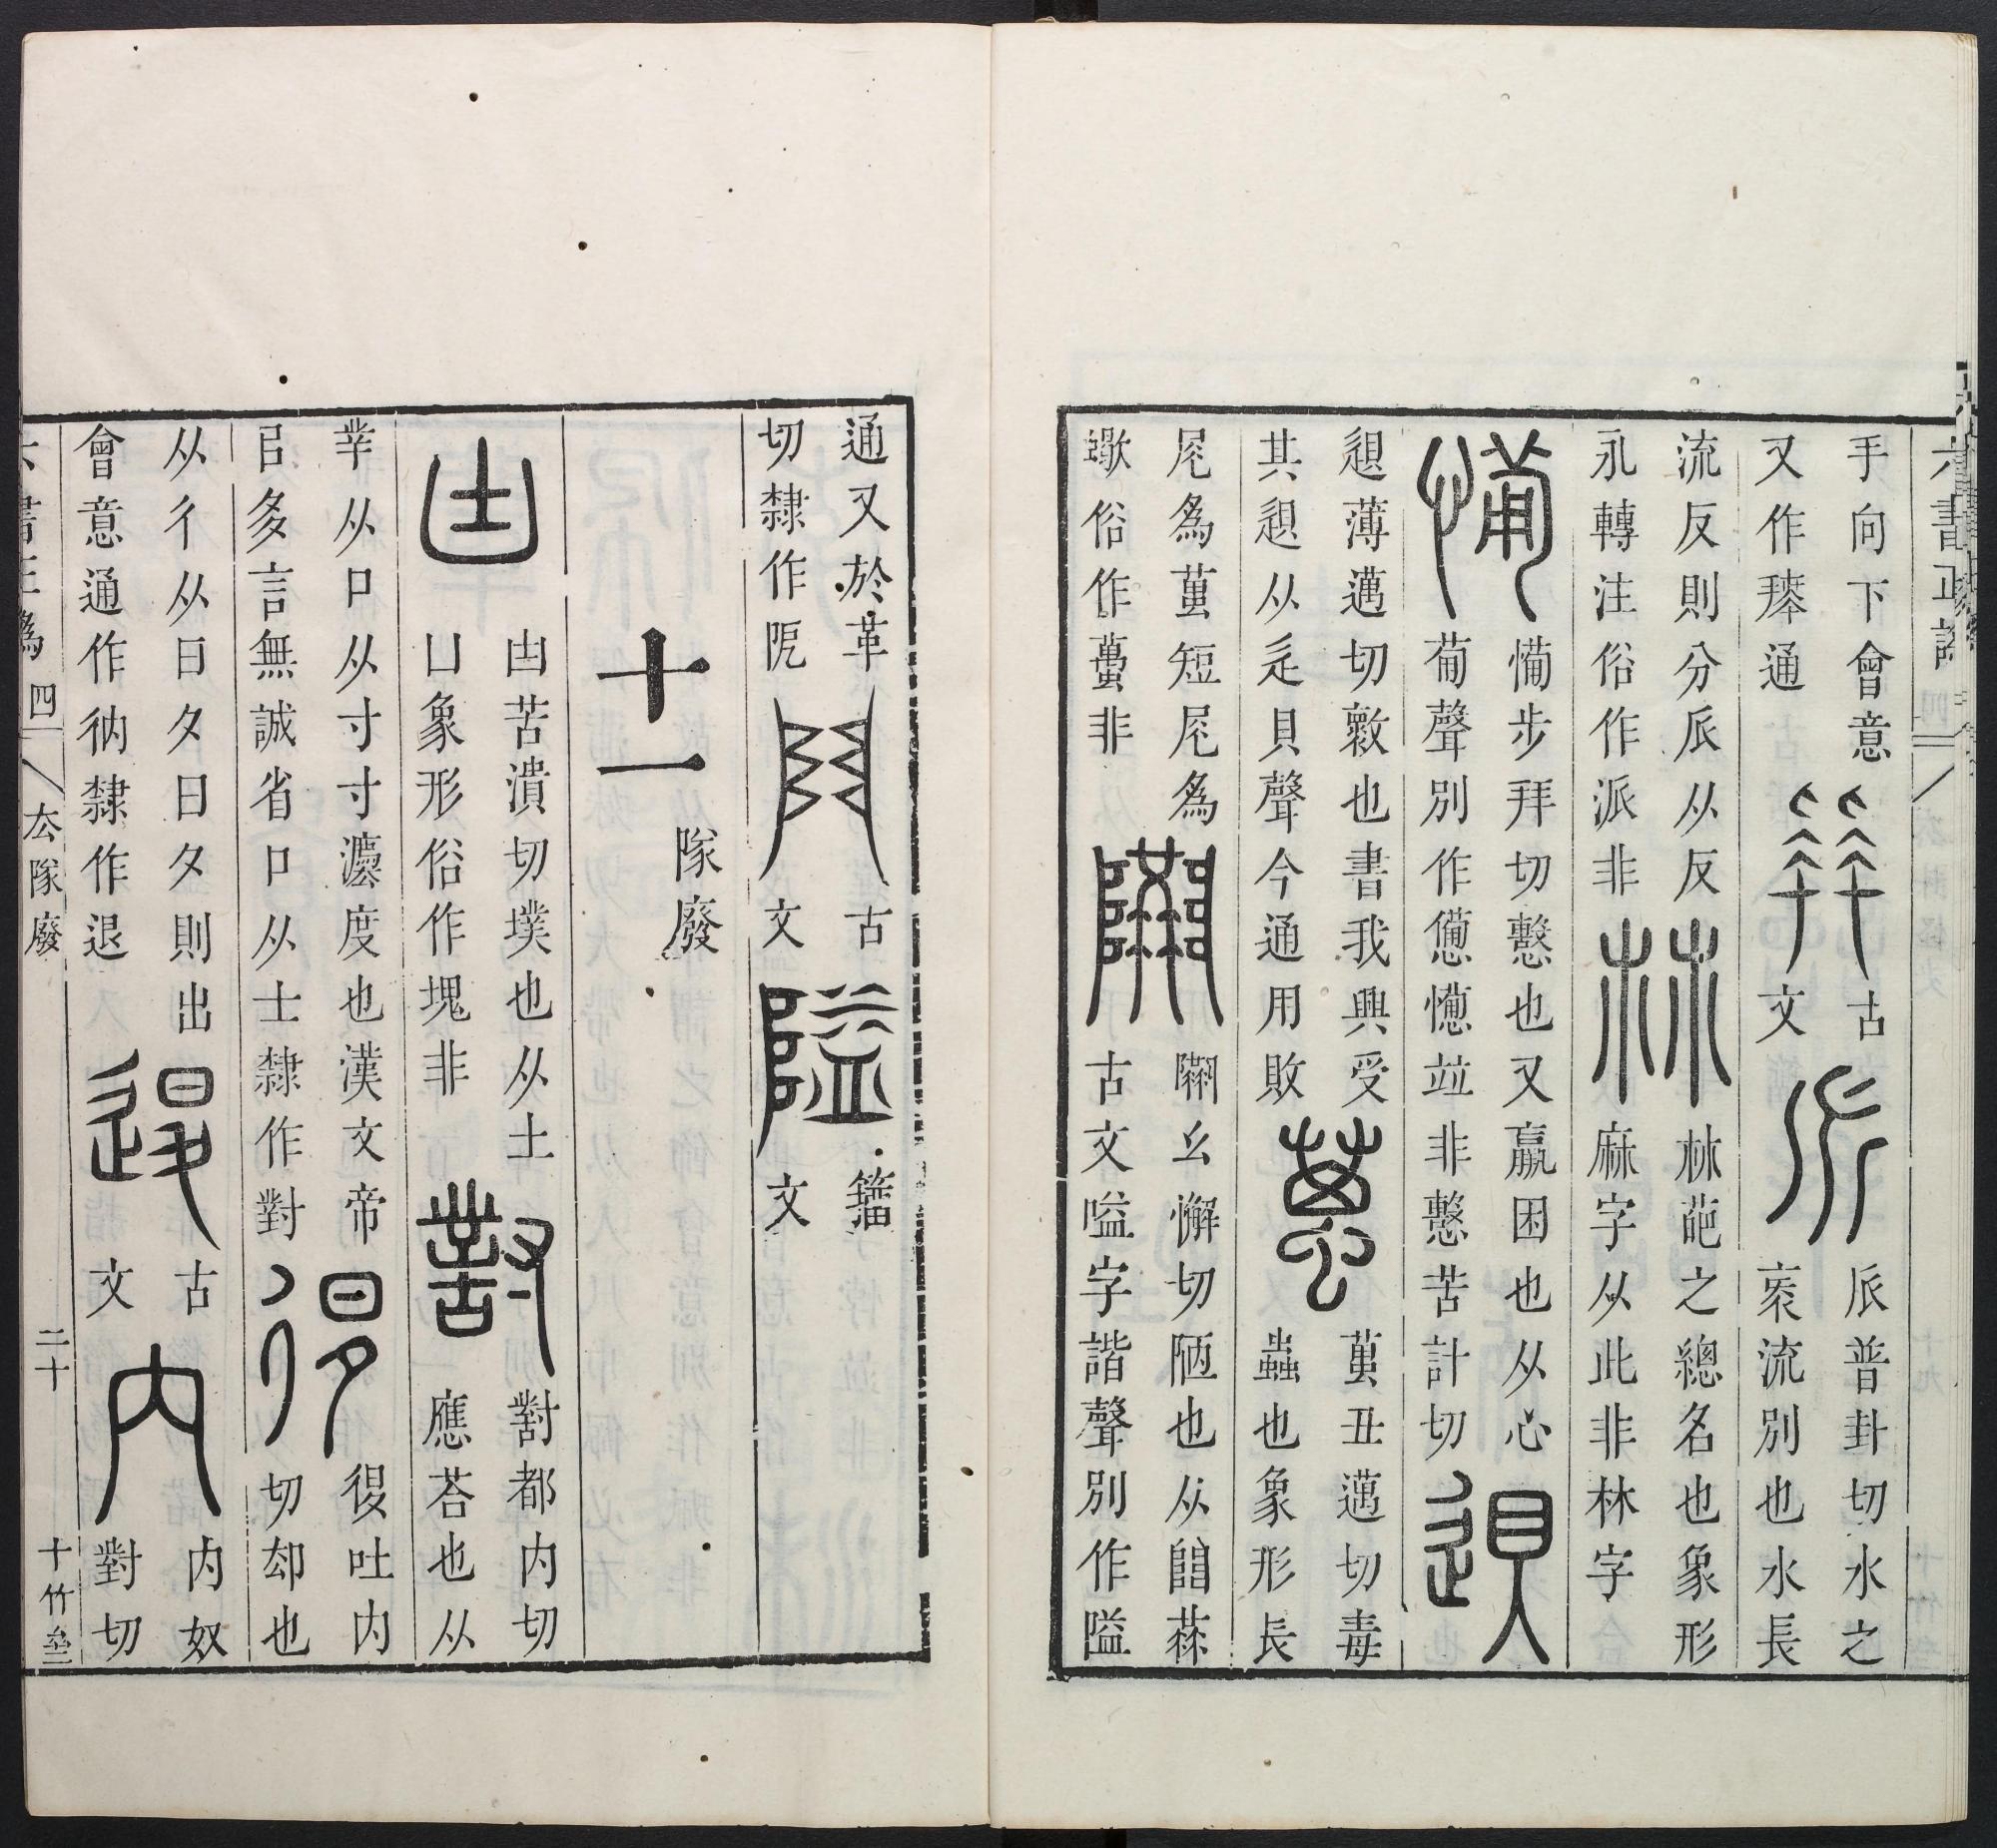 手向下會意
又作𢱭通
古
文
𠂢普卦切水之
衺流別也水長
流反則分𠂢从反
永轉注俗作派非
𣏟葩之總名也象形
麻字从此非林字
㣁步拜切憊也又羸困也从心
𤰇聲別作憊㣁並非憊苦計切
𨓤薄邁切敹也書我興受
其𨓤从辵貝聲今通用敗
萬丑邁切毒
蟲也象形長
尾爲萬短尾爲
蠍俗作蠆非
𨽗幺懈切陋也从𨸏𠔉
古文嗌字諧聲別作隘
通又於革
切隸作阨
古
文
籒
文
十一
隊廢
凷苦潰切墣也从土
凵象形俗作塊非
對都内切
應荅也从
丵从口从寸寸灋度也漢文帝
㠯多言無誠省口从士隸作對
復吐内
切却也
从彳从日夊日夊則出
會意通作衲隸作退
古
文
内奴
對切
六書正譌 四
厺隊廢
二十
十竹齋